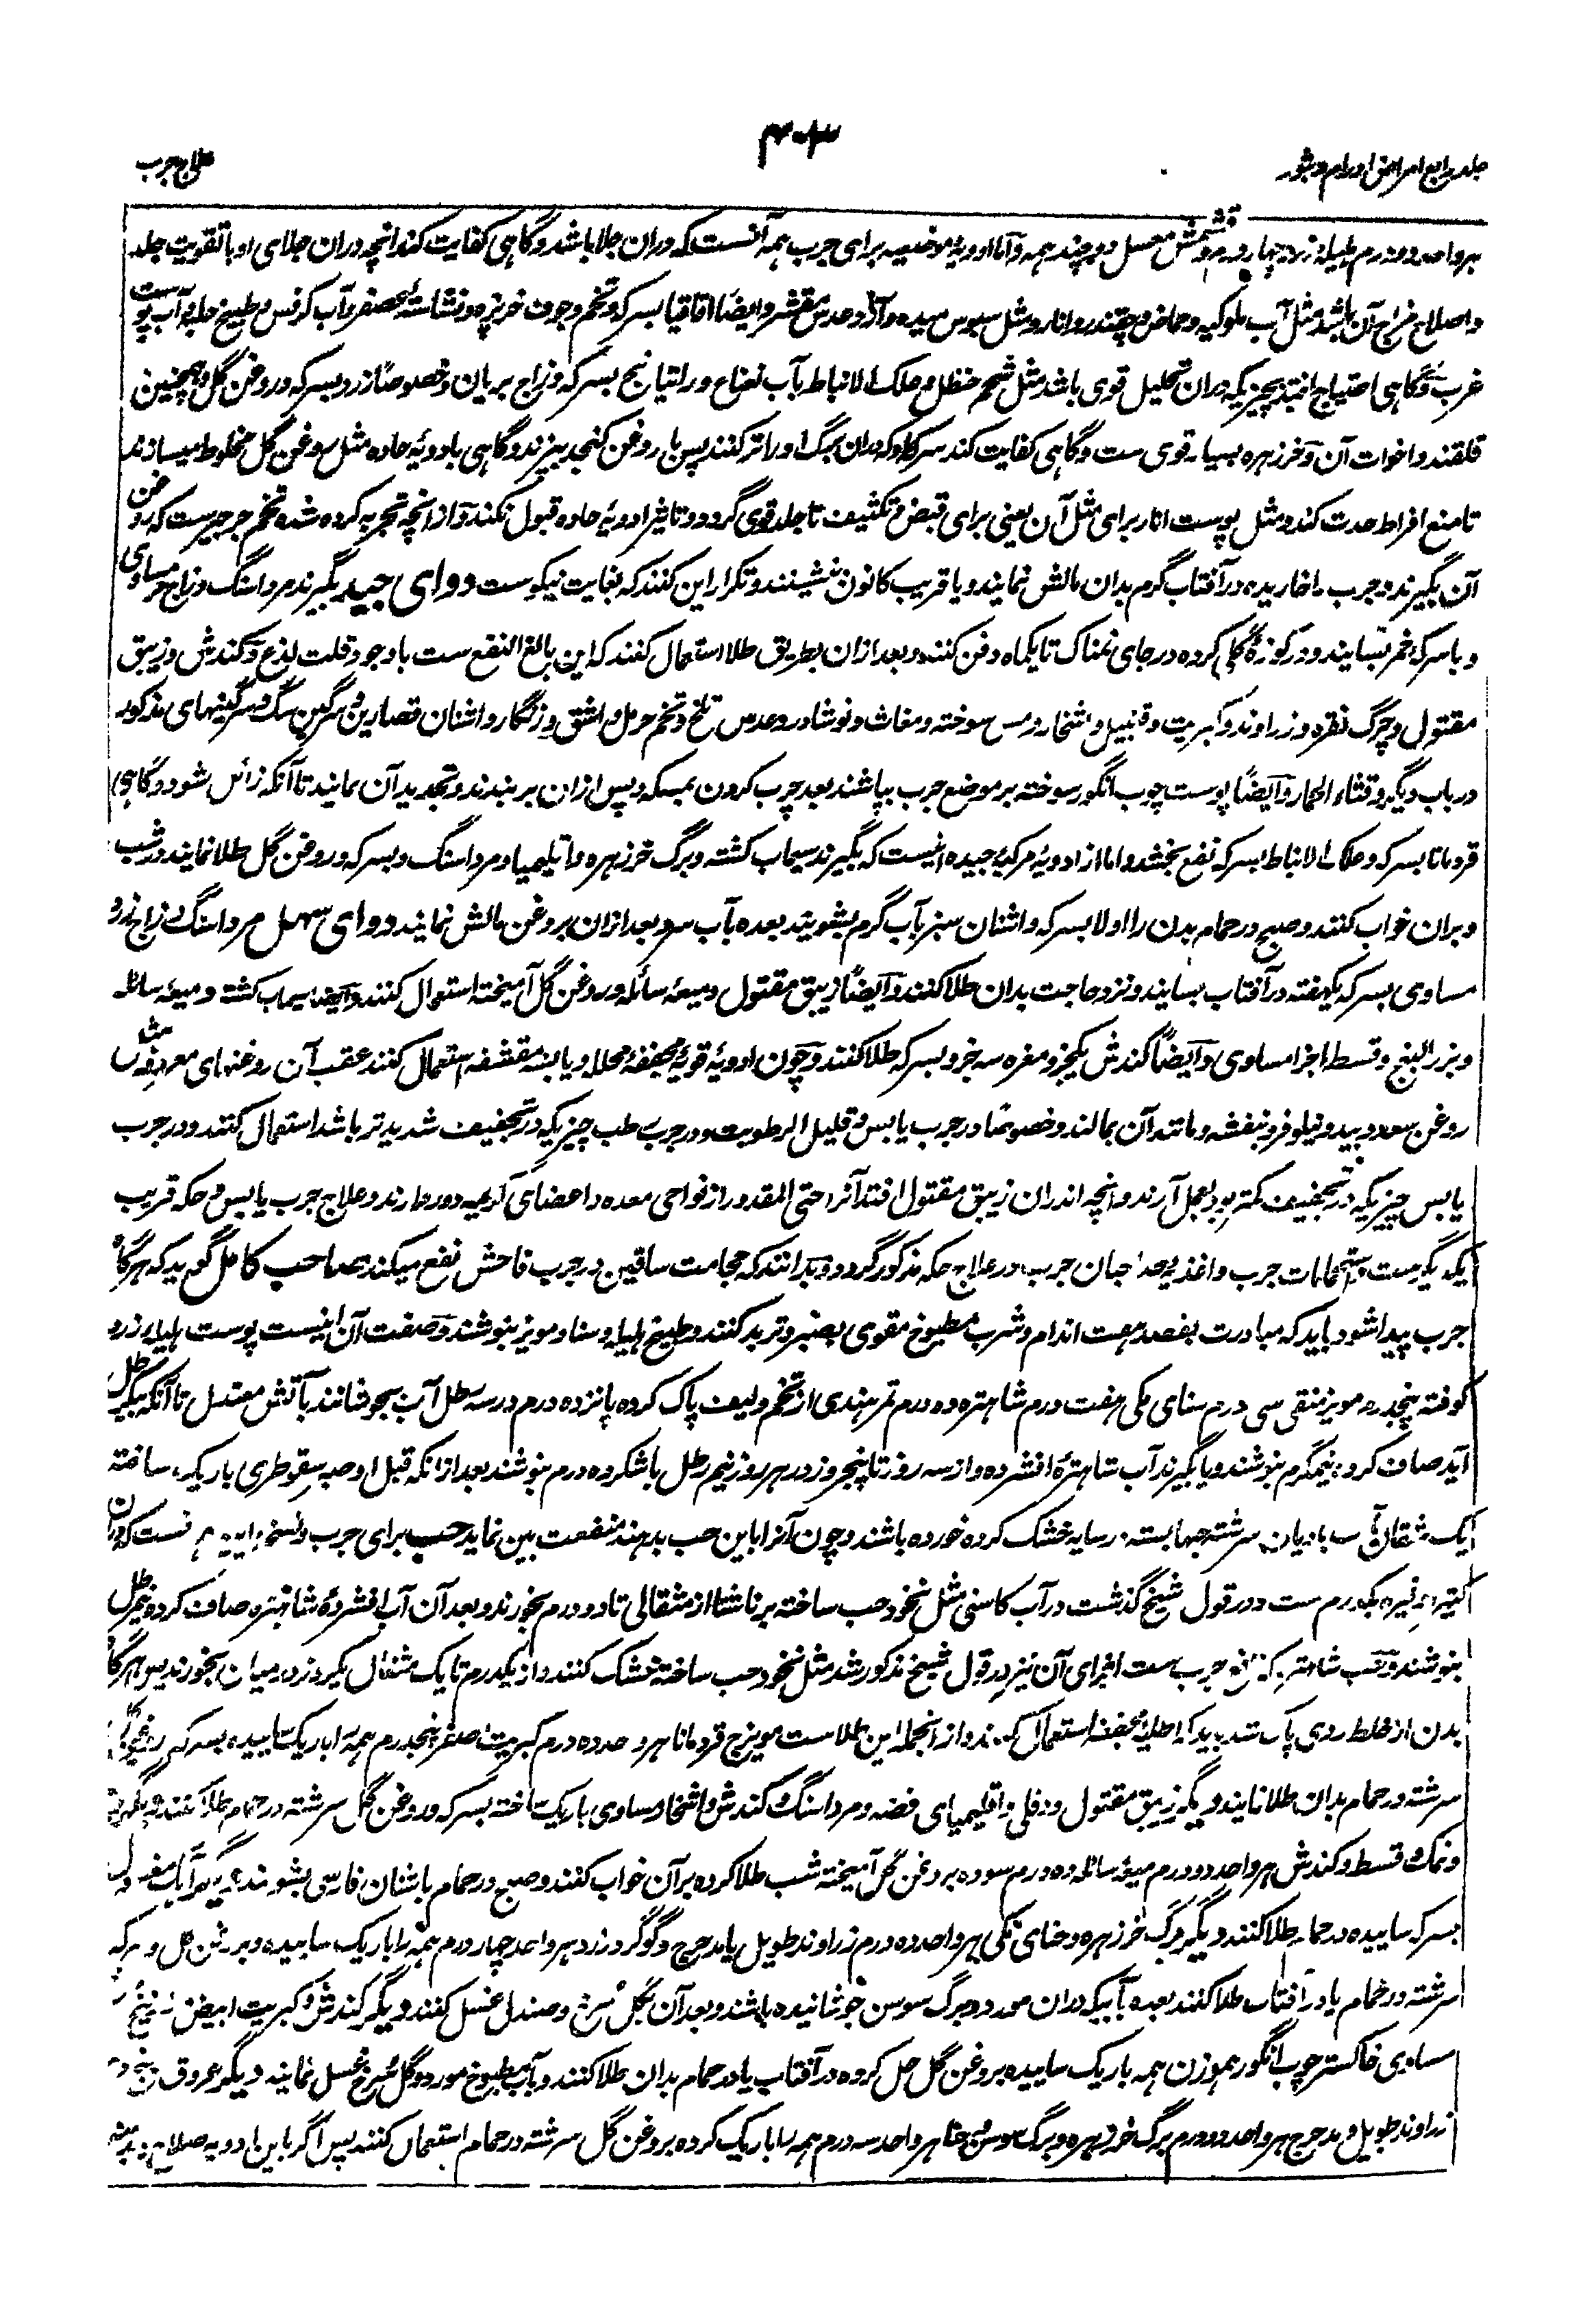 ۴۰۳
جلد رابع امراض اورام و بثور
علاج جرب
هر واحد دو درم هلیله زرد چهار درم قشمش معسل دو چند همه و اما ادویهٔ موضعیه برای جرب همه آنست که دران جلا باشد و گاهی کفایت کند انچه دران جلای او با تقویت جلد
و اصلاح مزاج آن باشد مثل آب ملوکیه و حماض و چقندر و انار و مثل سبوس میده و آرد عدس مقشر و ایضاً اقاقیا بسرکه و تخم و جوف خربزه و نشاسته معصفر و آب کرفس و طبیخ حلبه و آب پوست
غرب و گاهی احتیاج افتد بچیزیکه دران تحلیل قوی باشد مثل شحم حنظل و علک الانباط بآب نعناع و راتیانج بسرکه و زاج بریان و خصوصاً زرد بسرکه و روغن گل و همچنین
قلقند و اخوات آن و خرزهره بسیار قوی ست و گاهی کفایت کند سرکه که دران برگ او را تر کنند پس با روغن کنجد بپزند و گاهی با ادویهٔ حاده مثل روغن گل مخلوط میسازند
تا منع افراط حدت کند و مثل پوست انار برای مثل آن یعنی برای قبض و تکثیف تا جلد قوی گردد و تاثیر ادویه حاده قبول نکند و از انچه تجربه کرده شده تخم جرجیرست که روغن
آن بگیرند و جرب را خاریده در آفتاب گرم بدان مالش نمایند و یا قریب کانون نشینند و تکرار این کنند که بغایت نیکوست دوای جید بگیرند مرداسنگ و زاج مساوی
و با سرکه خمر بسایند و در کوزهٔ گلی کرده در جای نمناک تا یکماه دفن کنند و بعد ازان بطریق طلا استعمال کنند که این بالغ النفع ست باوجود قلت لذع و کندش و زیبق
مقتول و چرک نقره و زراوند و کبریت و قنبیل و اشخار و مس سوخته و مغاث و نوشادر و عدس تلخ و تخم حرمل و اشق و زنگار و اشنان قصارین و سرگین سگ و سرگینهای مذکور
در باب دیگر و قثاء الحمار و ایضاً پوست چوب انگور سوخته بر موضع جرب بپاشند بعد چرب کردن بمسکه و پس ازان بر بندند و تجدید آن نمایند تا آنکه زائل شود و گاهی
قردمانا بسرکه و علک الانباط بسرکه نفع بخشد و اما از ادویهٔ مرکبهٔ جیده اینست که بگیرند سیماب کشته و برگ خرزهره و اقلیمیا و مرداسنگ و بسرکه و روغن گل طلا نمایند و شب
و بران خواب کنند و صبح در حمام بدن را اولا بسرکه و اشنان سبز بآب گرم بشویند بعده بآب سرد بعد ازان بروغن مالش نمایند دوای سهل مرداسنگ و زاج زرد
مساوی بسرکه یکهفته در آفتاب بسایند و نزد حاجت بدان طلا کنند و ایضاً زیبق مقتول و میعهٔ سائله و روغن گل آمیخته استعمال کنند و ایضاً سیماب کشته و میعه سائله
و بزر البنج و قسط اجزا مساوی و ایضاً کندش یکجزو مغره سه جزو بسرکه طلا کنند و چون ادویهٔ قویهٔ مجففهٔ محلله و یابسه مقشفه استعمال کنند عقب آن روغنهای معروفه مثل
روغن مورد و بید و نیلوفر و بنفشه و مانند آن بمالند و خصوصاً در جرب یابس و قلیل الرطوبت و در جرب رطب چیزیکه در تجفیف شدیدتر باشد استعمال کنند و در جرب
یابس چیزیکه در تجفیف کمتر بود بعمل آرند و انچه اندران زیبق مقتول افتد آنرا حتی المقدور از نواحی معده و اعضای کریمه دور دارند و علاج جرب یابس و حکه قریب
یکدیگرست و استحمامات جرب و اغذیه صاحبان جرب در علاج حکه مذکور گردد و بدانند که حجامت ساقین در جرب فاحش نفع میکند صاحب کامل گوید که هرگاه
جرب پیدا شود باید که مبادرت بفصد هفت اندام و شرب مطبوخ مقوی بصبر و تربد کنند و طبیخ هلیله و سنا و مویز بنوشند و صفت آن اینست پوست هلیله زرد
کوفته پنجدرم مویز منقی سی درم سنای مکی هفت درم شاهتره ده درم تمر هندی از تخم و لیف پاک کرده پانزده درم در سه رطل آب بجوشانند بآتش معتدل تا آنکه بیک رطل
آید صاف کرده نیمگرم بنوشند و یا بگیرند آب شاهترهٔ افشرده و از سه روز تا پنجروز در هر روز نیم رطل با شکر ده درم بنوشند بعد ازانکه قبل او صبر سقوطری باریک ساخته
یک مثقال بآب بادیان سرشته حبها بسته در سایه خشک کرده خورده باشند و چون آنرا با این حب بدهند منفعت بین نماید حب برای جرب
کتیرا وغیره یکدرم ست و در قول شیخ گذشت در آب کاسنی مثل نخود حب ساخته بر ناشتا از مثقالی تا دو درم بخورند و بعد آن آب افشردهٔ شاهتره صاف کرده نیم رطل
بنوشند و حب شاهتره که نافع جرب ست اجزای آن نیز در قول شیخ مذکور شد مثل نخود حب ساخته خشک کنند و از یکدرم تا یک مثقال یکروز در میان بخورند پس هرگاه
بدن از خلط ردی پاک شد باید که اطلیهٔ مجففه استعمال کنند و از انجمله این طلاست مویزج قردمانا هر واحد ده درم کبریت اصفر پنجدرم همه را باریک ساییده بسرکه
سرشته در حمام بدان طلا نمایند دیگر زیبق مقتول و دفلی و اقلیمیای فضه و مرداسنگ و کندش و اشخار مساوی باریک ساخته بسرکه و روغن گل سرشته در حمام طلا کنند
و نمک و قسط و کندش هر واحد دو درم میعهٔ سائله ده درم سوده بروغن گل آمیخته شب طلا کرده بر آن خواب کنند و صبح در حمام باشنان فارسی بشویند دیگر
بسرکه ساییده در حمام طلا کنند دیگر برگ خرزهره و حنای مکی هر واحد ده درم زراوند طویل یا مدحرج و گوگرد زرد هر واحد چهار درم همه را باریک ساییده و بروغن گل و سرکه
سرشته در حمام یا در آفتاب طلا کنند بعده بآبیکه دران مورد و برگ سوسن جوشانیده باشند و بعد آن بگل سرخ و صندل غسل کنند دیگر کندش و کبریت ابیض
مساوی خاکستر چوب انگور هموزن همه باریک ساییده بروغن گل حل کرده در آفتاب یا در حمام بدان طلا کنند و بآب مطبوخ مورد و گل سرخ غسل نمایند دیگر عروق
زراوند طویل و مدحرج هر واحد دو درم برگ خرزهره و برگ سوسن و حنا هر واحد سه درم همه را باریک کرده بروغن گل سرشته در حمام استعمال کنند پس اگر باین ادویه صلاح